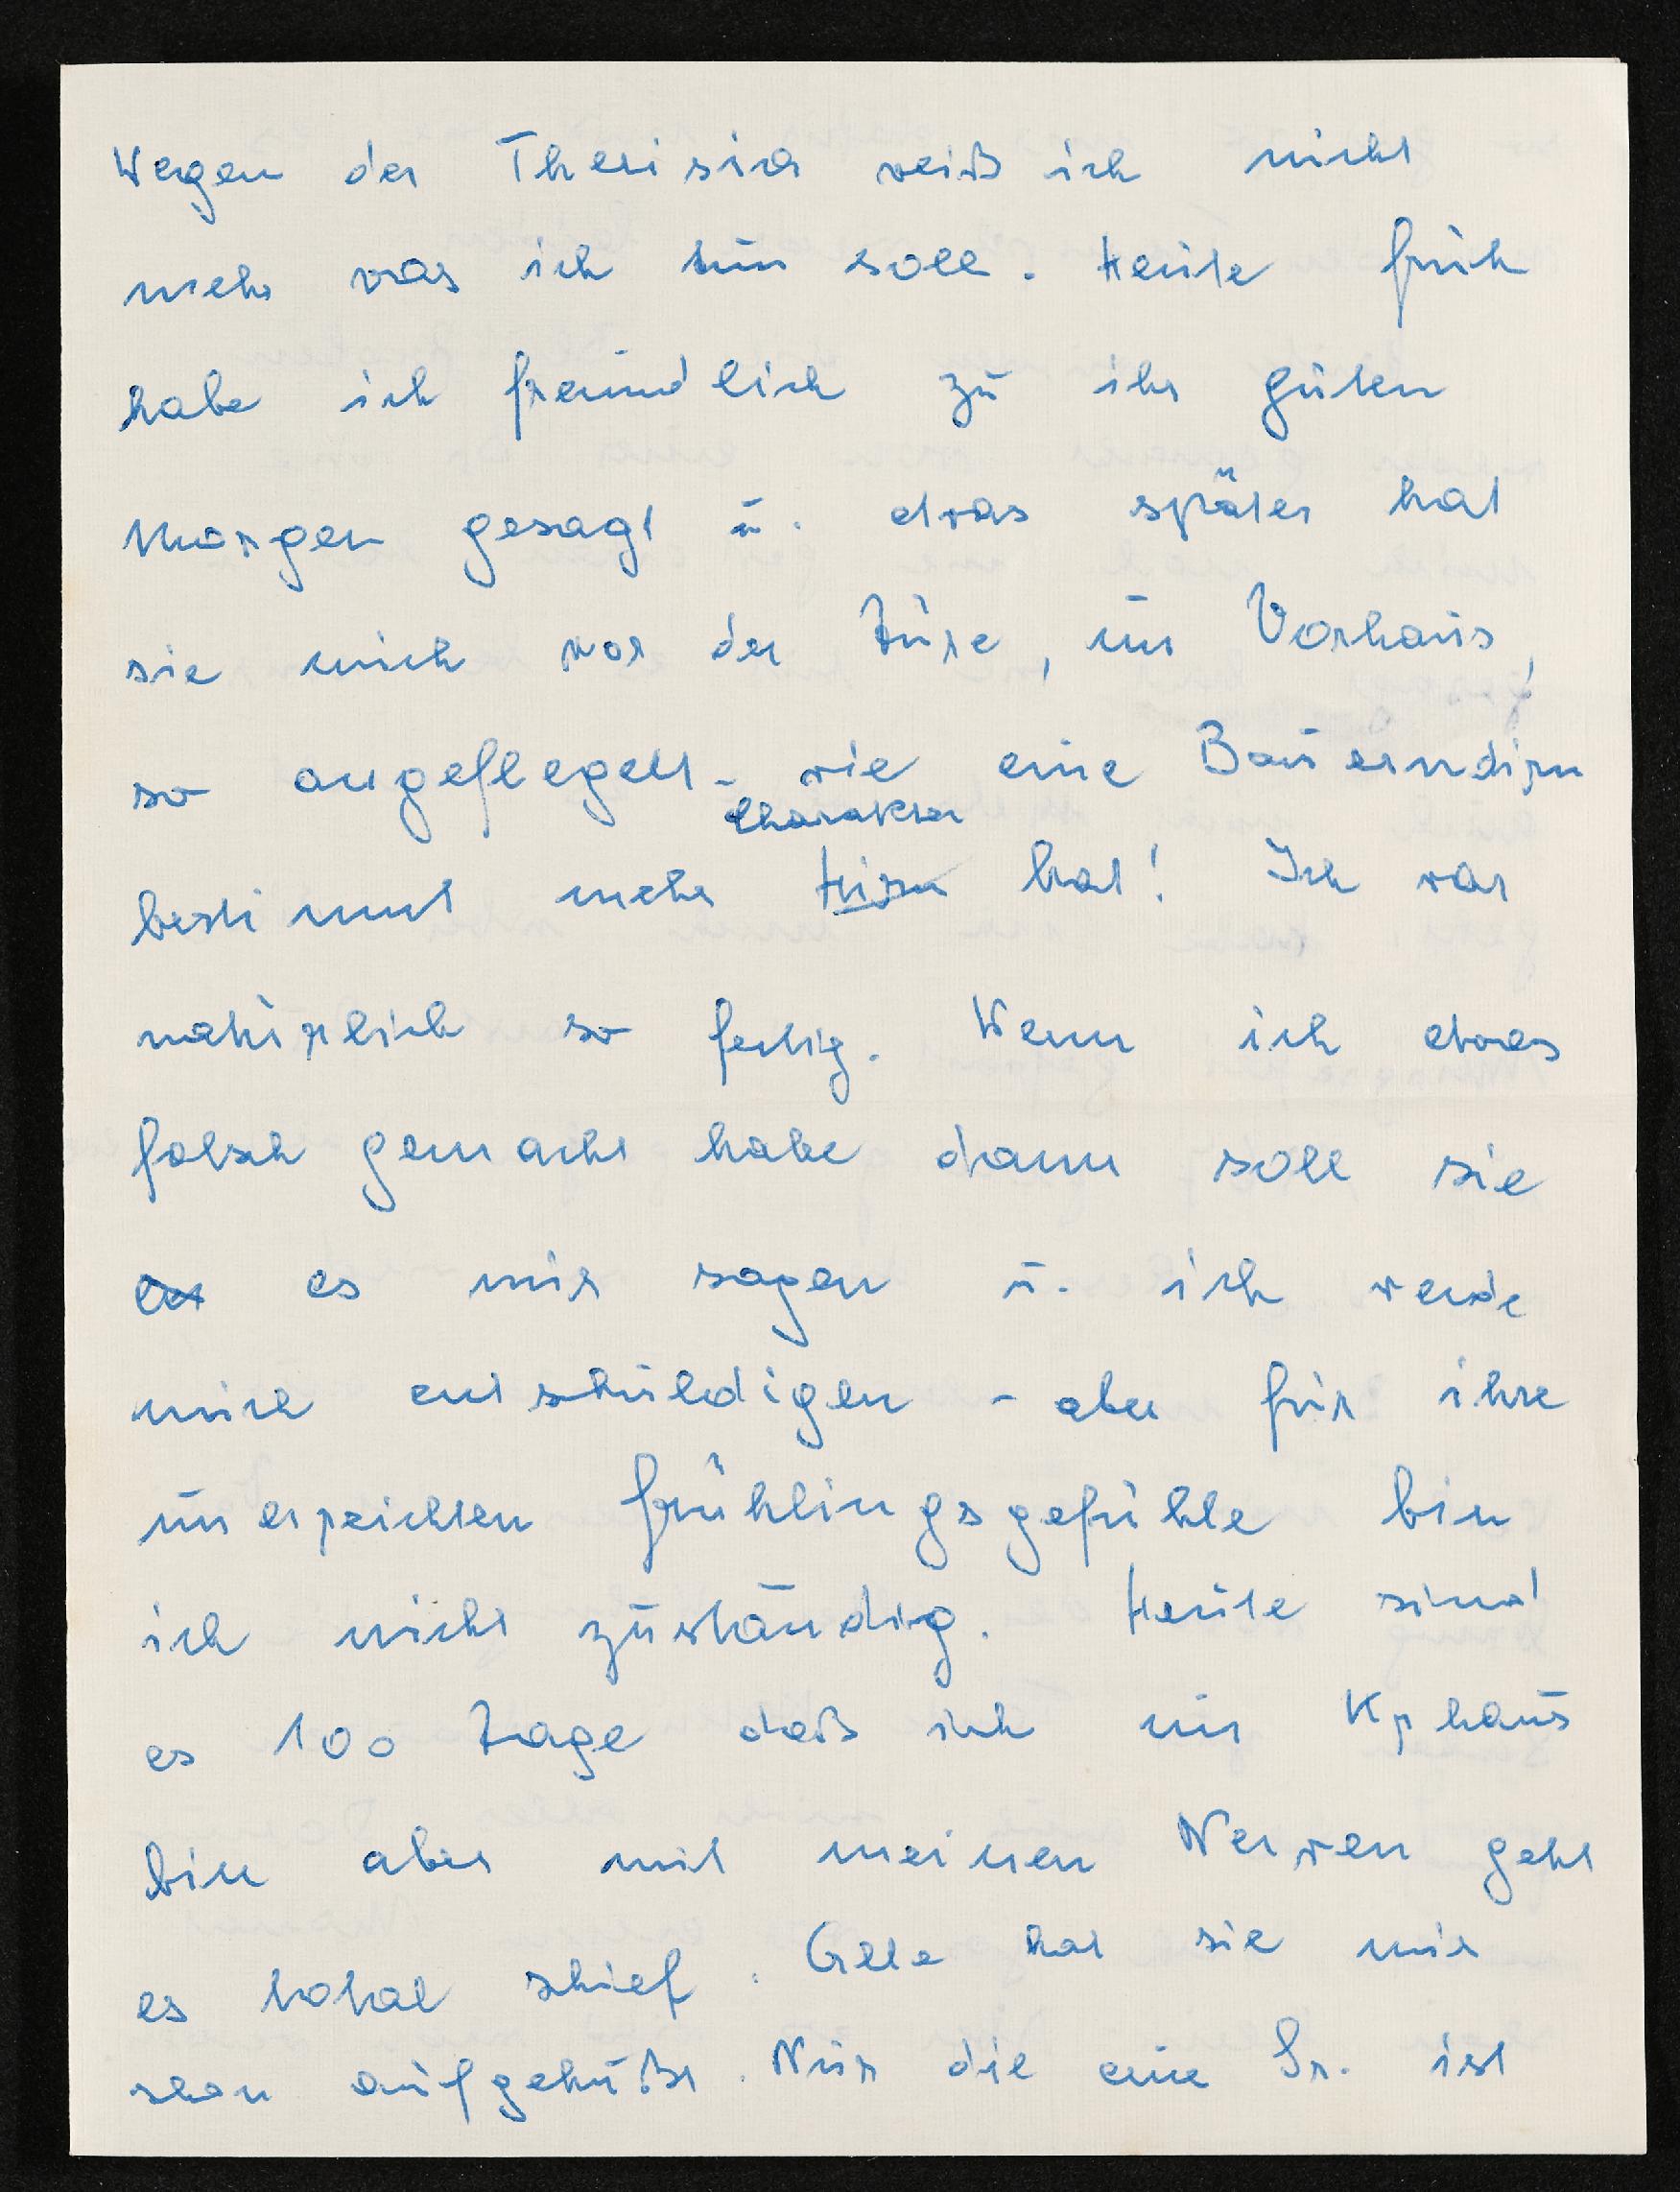 Wegen der Therisia weiß ich nicht
mehr was ich tun soll. Heute früh
habe ich freundlich zu ihr guten
Morgen gesagt u. etwas später hat
sie mich vor der Türe, im Vorhaus,
so angeflegelt - wie eine Bauerndirn
Charakter
bestimmt mehr Hirn hat! Ich war
natürlich so fertig. Wenn ich etwas
falsch gemacht habe dann soll sie
es mir sagen u. ich werde
mich entschuldigen - aber für ihre
unerreichten Frühlingsgefühle bin
ich nicht zuständig. Heute sind
es 100 Tage daß ich im Krhaus
bin aber mit meinen Nerven geht
es total schief. Alle hat sie mir
schon aufgehußt. Nur die eine Sr. ist